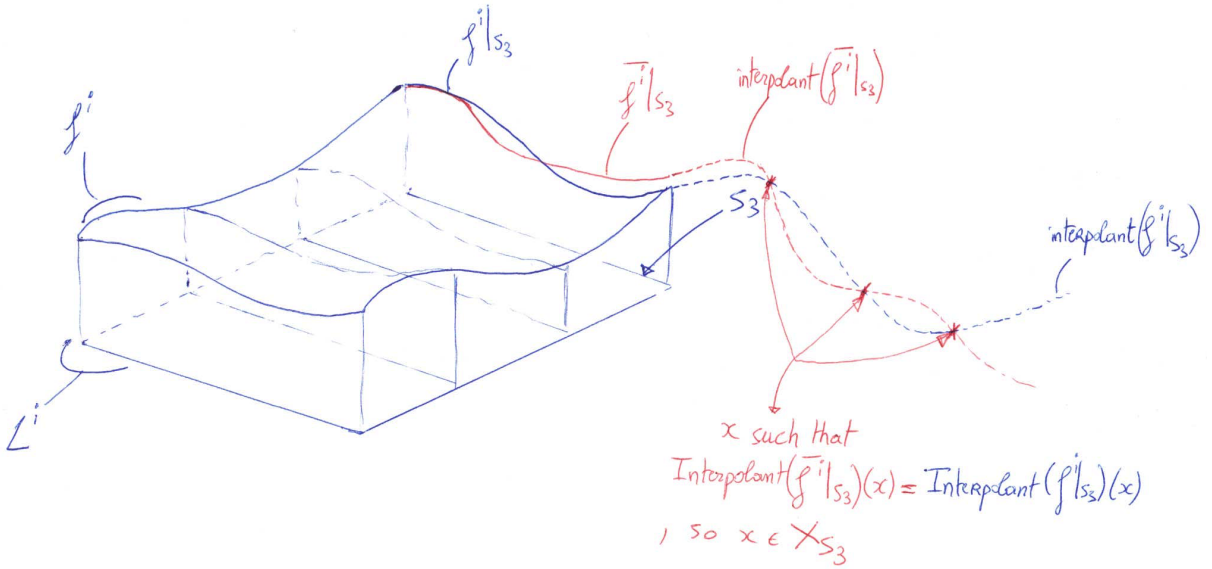 fⁱ|S₃
f̄ⁱ|S₃
interpolant(f̄ⁱ|S₃)
fⁱ
S₃
interpolant(fⁱ|S₃)
Lⁱ
x such that
Interpolant(f̄ⁱ|S₃)(x) = Interpolant(fⁱ|S₃)(x)
, so x ∈ X_S₃